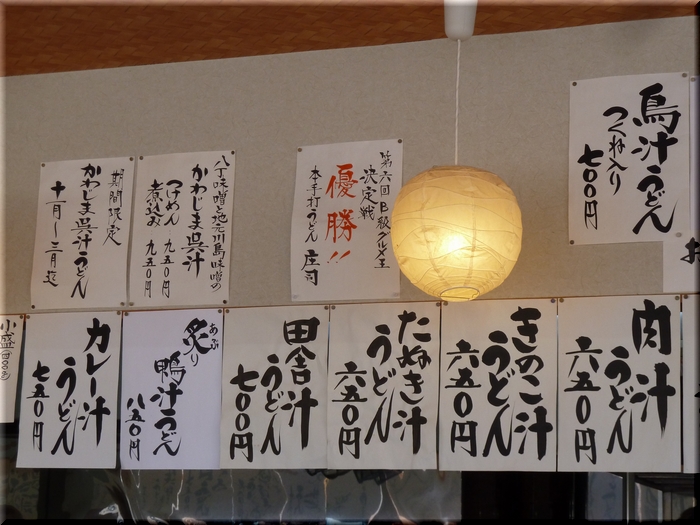 鳥汁うどん
つくね入り
七〇〇円
第六回B級グルメ王
決定戦
優勝!!
本手打うどん 庄司
八丁味噌と地元川島味噌の
かわじま呉汁
つけめん 九五〇円
煮込み 九五〇円
期間限定
かわじま呉汁うどん
十一月〜三月迄
お
肉汁
うどん
六五〇円
きのこ汁
うどん
六五〇円
たぬき汁
うどん
六五〇円
田舎汁
うどん
七〇〇円
炙り
あぶ
鴨汁うどん
八五〇円
カレー汁
うどん
七五〇円
小盛